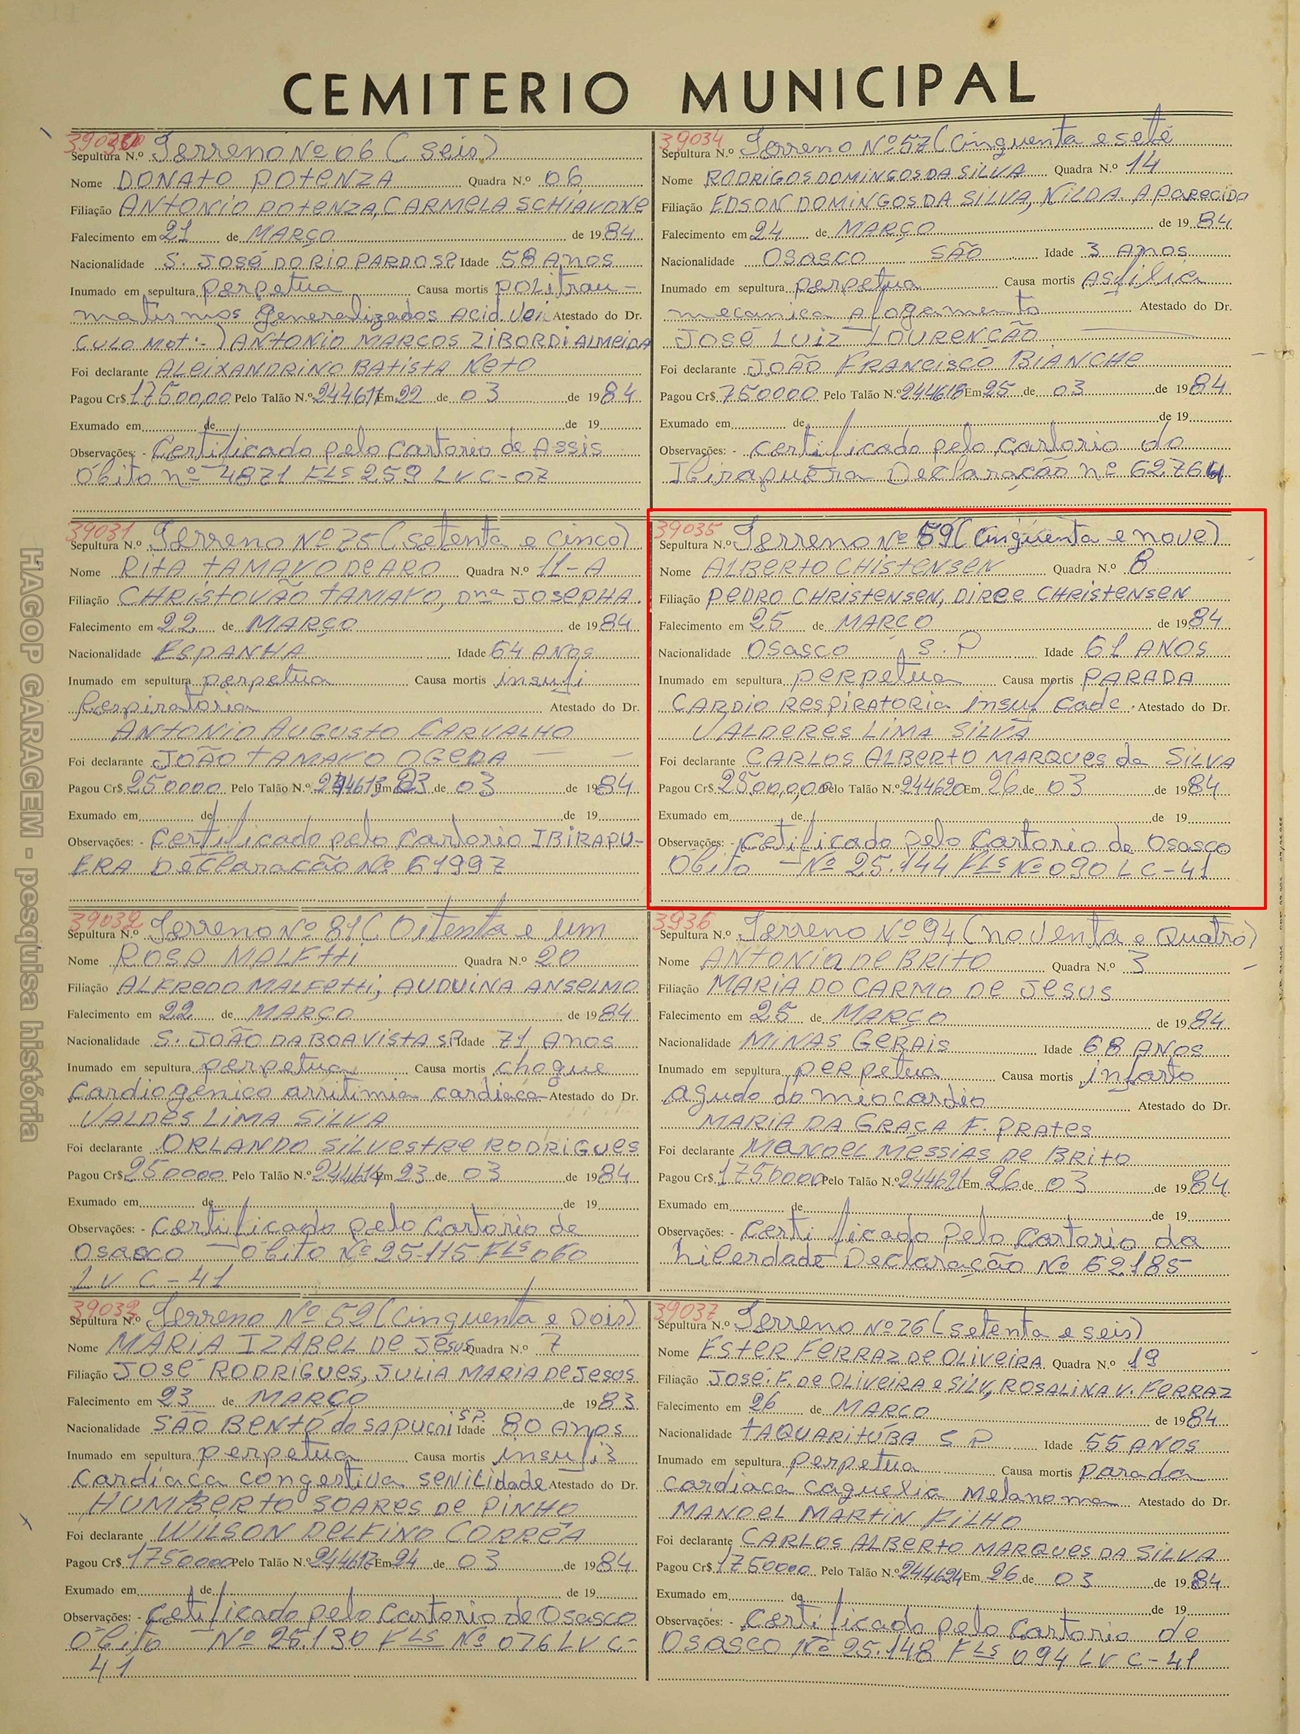 CEMITERIO MUNICIPAL
39030
Sepultura N.º Terreno Nº 06 (seis)
Nome DONATO POTENZA Quadra N.º 06
Filiação ANTONIO POTENZA, CARMELA SCHIAVONE
Falecimento em 21 de MARÇO de 1984
Nacionalidade S. JOSÉ DO RIO PARDO SP Idade 58 ANOS
Inumado em sepultura perpetua Causa mortis politrau-
matismos generalizados Acid Vei Atestado do Dr.
culo Mot: - ) ANTONIO MARCOS ZIBORDI ALMEIDA
Foi declarante ALEIXANDRINO BATISTA NETO
Pagou Cr$ 17500,00 Pelo Talão N.º 244611 Em 22 de 03 de 1984
Exumado em de de 19
Observações: - Certificado pelo Cartorio de Assis
Óbito nº 4871 FLS 259 LV C-07
39031
Sepultura N.º Terreno Nº 75 (setenta e cinco)
Nome RITA TAMAYO DE ARO Quadra N.º 11-A
Filiação CHRISTOVÃO TAMAYO, Dna JOSEPHA.
Falecimento em 22 de MARÇO de 1984
Nacionalidade ESPANHA Idade 64 ANOS
Inumado em sepultura perpetua Causa mortis insufi
Respiratoria Atestado do Dr.
ANTONIO AUGUSTO CARVALHO
Foi declarante JOÃO TAMAYO OGEDA
Pagou Cr$ 250000 Pelo Talão N.º 244613 Em 23 de 03 de 1984
Exumado em de de 19
Observações: - Certificado pelo Cartorio IBIRAPU-
ERA Declaração Nº 61997
39032
Sepultura N.º Terreno Nº 81 (Oitenta e um
Nome ROSA MALFTTI Quadra N.º 20
Filiação ALFREDO MALFETTI, AUDUINA ANSELMO
Falecimento em 22 de MARÇO de 1984
Nacionalidade S. JOÃO DA BOA VISTA SP Idade 71 ANOS
Inumado em sepultura perpetua Causa mortis choque
cardiogênico arritimia cardiaca Atestado do Dr.
VALDES LIMA SILVA
Foi declarante ORLANDO SILVESTRE RODRIGUES
Pagou Cr$ 250000 Pelo Talão N.º 244614 Em 23 de 03 de 1984
Exumado em de de 19
Observações: - Certificado pelo Cartorio de
Osasco - Óbito Nº 25.115 FLS 060
LV C-41
39032
Sepultura N.º Terreno Nº 52 (cinquenta e Dois)
Nome MARIA IZABEL DE JESUS Quadra N.º 7
Filiação JOSÉ RODRIGUES, JULIA MARIA DE JESUS
Falecimento em 23 de MARÇO de 1983
Nacionalidade SÃO BENTO do SAPUCAI S.P. Idade 80 ANOS
Inumado em sepultura perpetua Causa mortis insufi3
cardiaca congestiva senilidade Atestado do Dr.
HUMBERTO SOARES DE PINHO
Foi declarante WILSON DELFINO CORRÊA
Pagou Cr$ 1750000 Pelo Talão N.º 244617 Em 24 de 03 de 1984
Exumado em de de 19
Observações: - Cetificado pelo Cartorio de Osasco
Óbito - Nº 25.130 FLS Nº 076 LV C-
41
39034
Sepultura N.º Terreno Nº 57 (Cinquenta e sete
Nome RODRIGOS DOMINGOS DA SILVA Quadra N.º 14
Filiação EDSON DOMINGOS DA SILVA, NILDA. Aparecida
Falecimento em 24 de MARÇO de 1984
Nacionalidade OSASCO SÃO Idade 3 ANOS
Inumado em sepultura perpetua Causa mortis Asfilica
mecanica Afogamento Atestado do Dr.
JOSÉ LUIZ LOURENCÃO
Foi declarante JOÃO FRANCISCO BIANCHE
Pagou Cr$ 750000 Pelo Talão N.º 244618 Em 25 de 03 de 1984
Exumado em de de 19
Observações: - certificado pelo cartorio do
Ibirapuera Declaração nº 62764
39035
Sepultura N.º Terreno Nº 59 (Cinqüenta e nove)
Nome ALBERTO CHISTENSEN Quadra N.º 8
Filiação PEDRO CHRISTENSEN, DIRCE CHRISTENSEN
Falecimento em 25 de MARÇO de 1984
Nacionalidade OSASCO S.P Idade 61 ANOS
Inumado em sepultura perpetua Causa mortis PARADA
CARDIO RESPIRATORIA Insuf Cade. Atestado do Dr.
VALDERES LIMA SILVA
Foi declarante CARLOS ALBERTO MARQUES da SILVA
Pagou Cr$ 25000,00 Pelo Talão N.º 244620 Em 26 de 03 de 1984
Exumado em de de 19
Observações: - Cetificado pelo Cartorio de Osasco
Obito - Nº 25.144 FLS Nº 090 L C-41
3936
Sepultura N.º Terreno Nº 94 (noventa e Quatro)
Nome ANTONIA DE BRITO Quadra N.º 3
Filiação MARIA DO CARMO DE JESUS
Falecimento em 25 de MARÇO de 1984
Nacionalidade MINAS GERAIS Idade 68 ANOS
Inumado em sepultura perpetua Causa mortis infarto
agudo do miocardio Atestado do Dr.
MARIA DA GRAÇA F. PRATES
Foi declarante MANOEL MESSIAS DE BRITO
Pagou Cr$ 1750000 Pelo Talão N.º 244621 Em 26 de 03 de 1984
Exumado em de de 19
Observações: - Certificado pelo Cartorio da
Liberdade Declaração Nº 62185
39037
Sepultura N.º Terreno Nº 76 (setenta e seis)
Nome ESTER FERRAZ DE OLIVEIRA Quadra N.º 19
Filiação JOSÉ. F. DE OLIVEIRA e SILV, ROSALINA V. FERRAZ
Falecimento em 26 de MARÇO de 1984
Nacionalidade TAQUARITUBA S P Idade 55 ANOS
Inumado em sepultura perpetua Causa mortis parada
cardiaca caquelia Melanoma Atestado do Dr.
MANOEL MARTIN FILHO
Foi declarante CARLOS ALBERTO MARQUES DA SILVA
Pagou Cr$ 1750000 Pelo Talão N.º 244624 Em 26 de 03 de 1984
Exumado em de de 19
Observações: - Certificado pelo Cartorio de
OSASCO Nº 25.148 FLS 094 LV C-41
HAGOP GARAGEM - pesquisa história